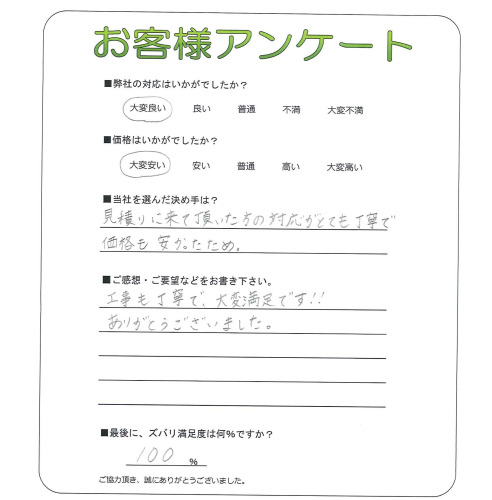 お客様アンケート
■弊社の対応はいかがでしたか？
大変良い 良い 普通 不満 大変不満
■価格はいかがでしたか？
大変安い 安い 普通 高い 大変高い
■当社を選んだ決め手は？
見積りに来て頂いた方の対応がとても丁寧で
価格も安かったため。
■ご感想・ご要望などをお書き下さい。
工事も丁寧で、大変満足です!!
ありがとうございました。
■最後に、ズバリ満足度は何％ですか？
100 %
ご協力頂き、誠にありがとうございました。